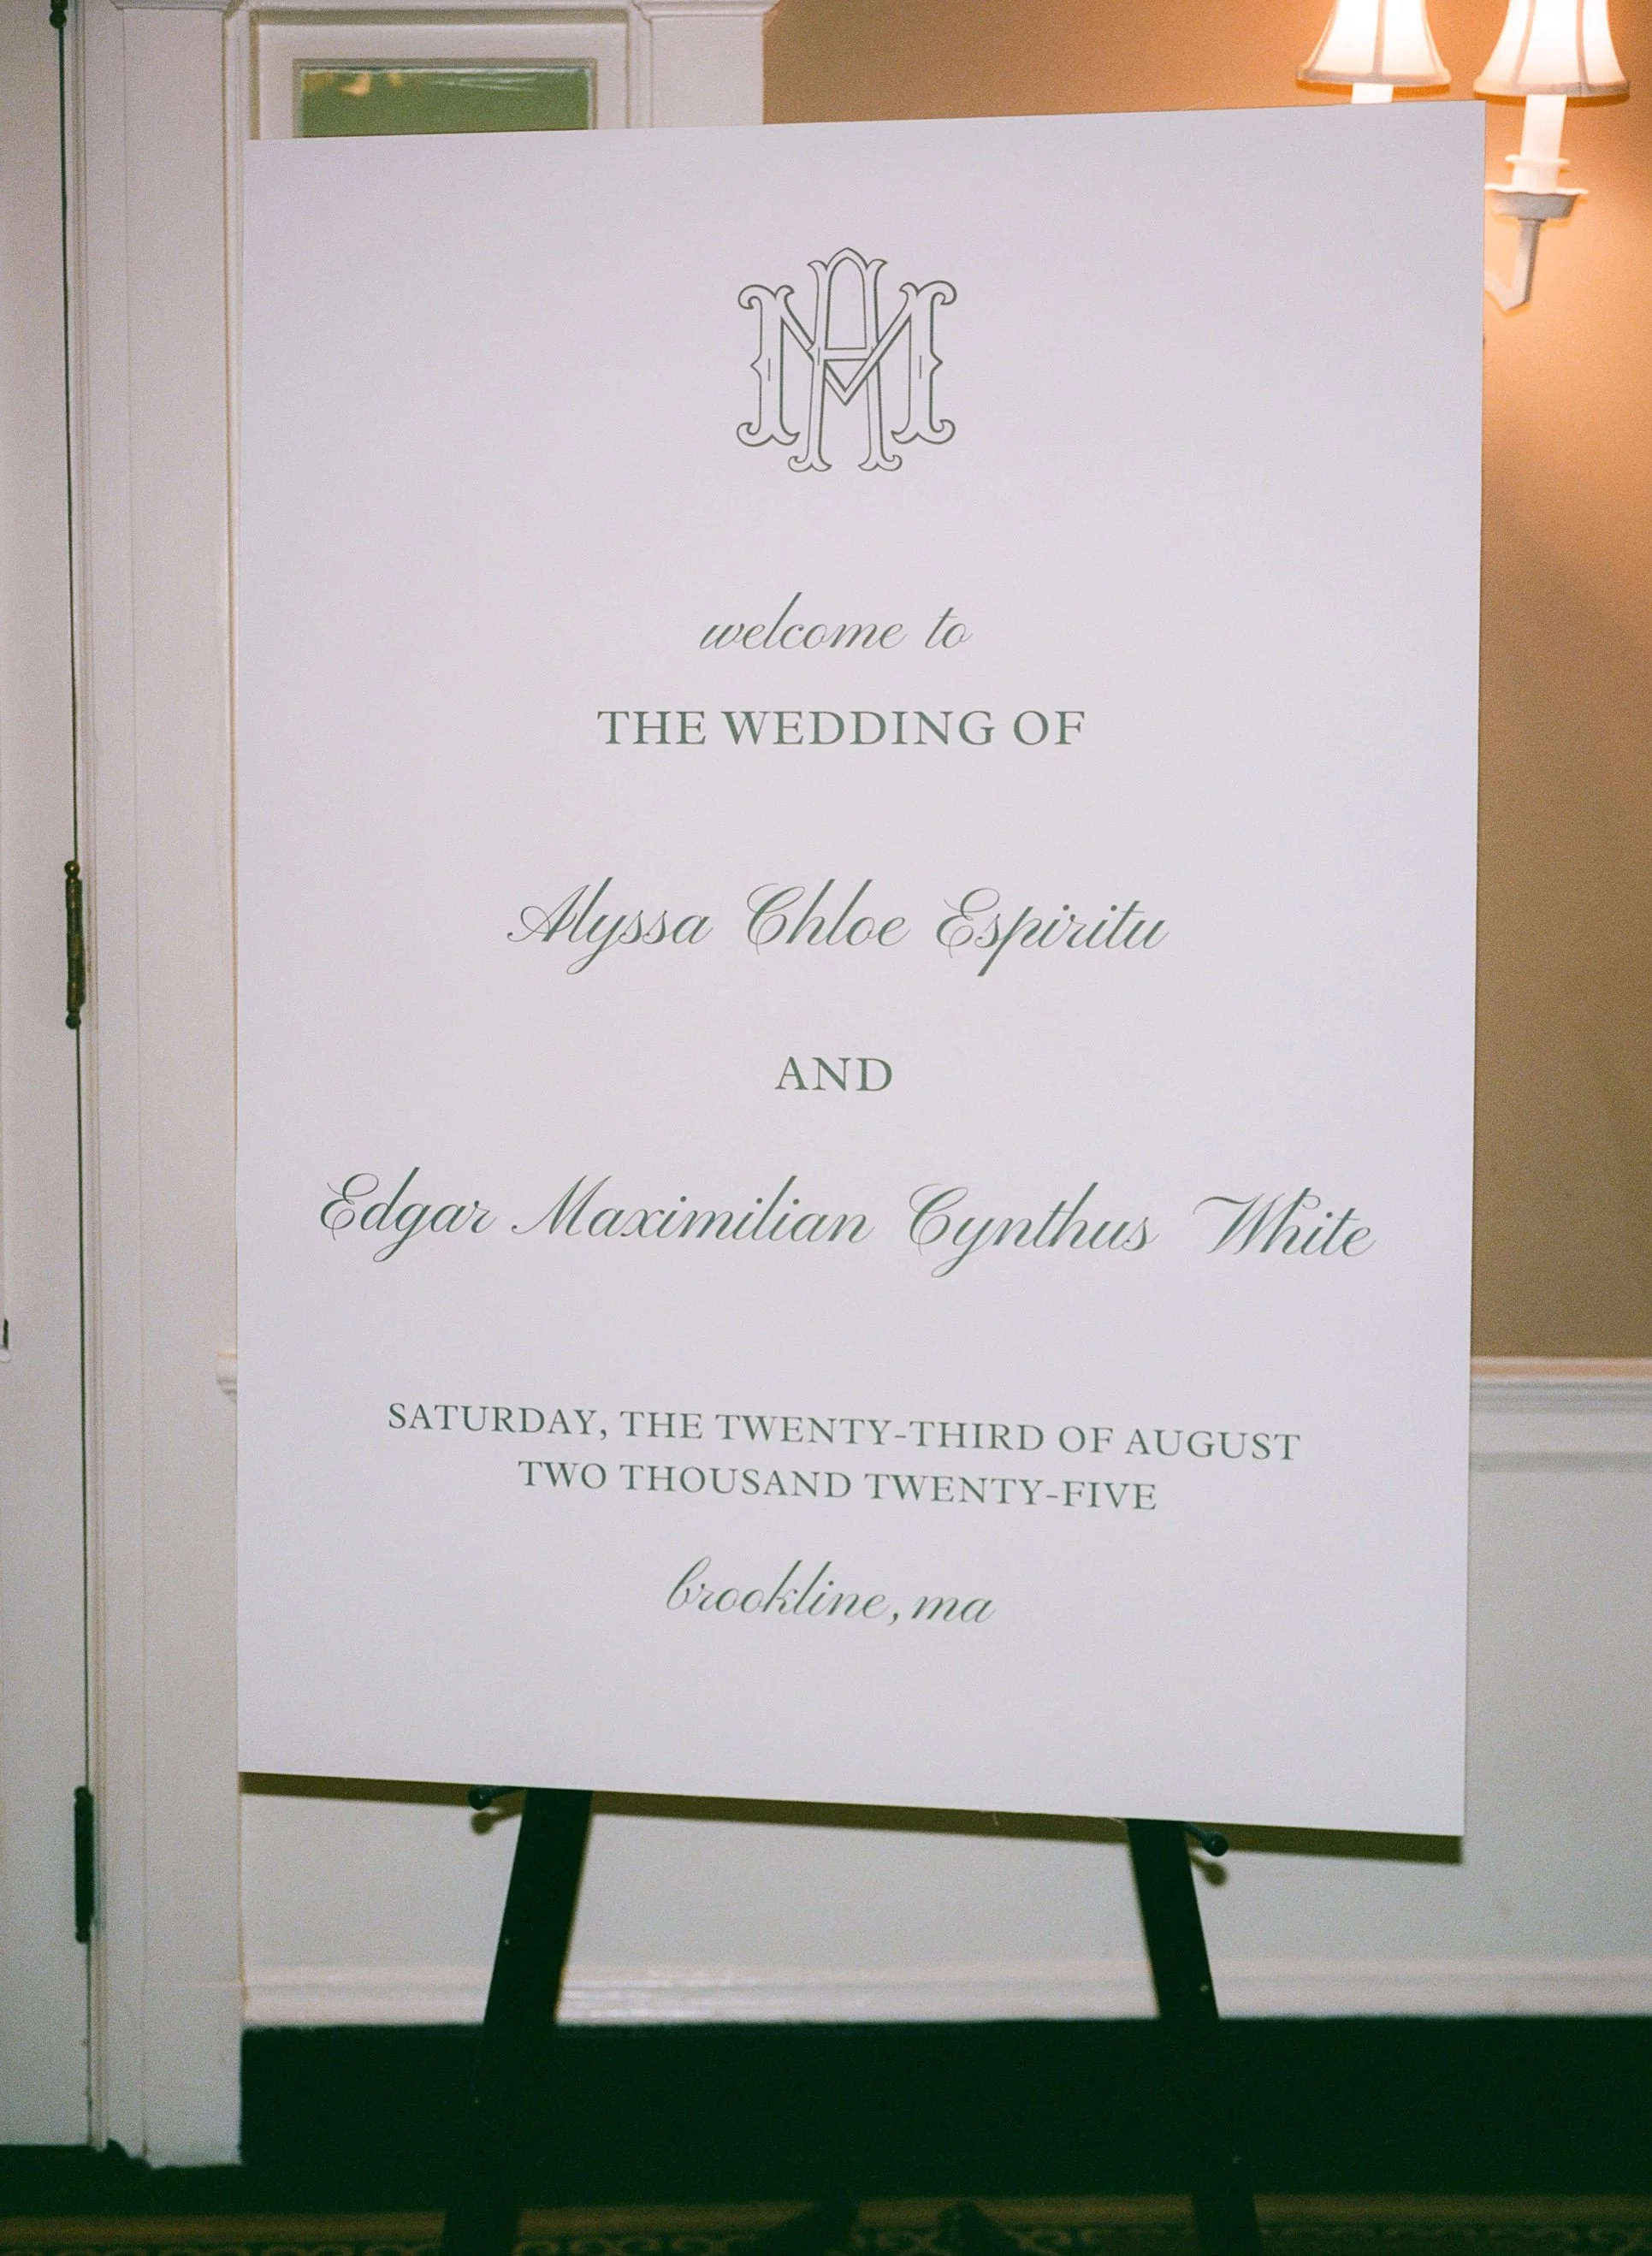 MA
welcome to
THE WEDDING OF
Alyssa Chloe Espiritu
AND
Edgar Maximilian Cynthus White
SATURDAY, THE TWENTY-THIRD OF AUGUST
TWO THOUSAND TWENTY-FIVE
brookline, ma